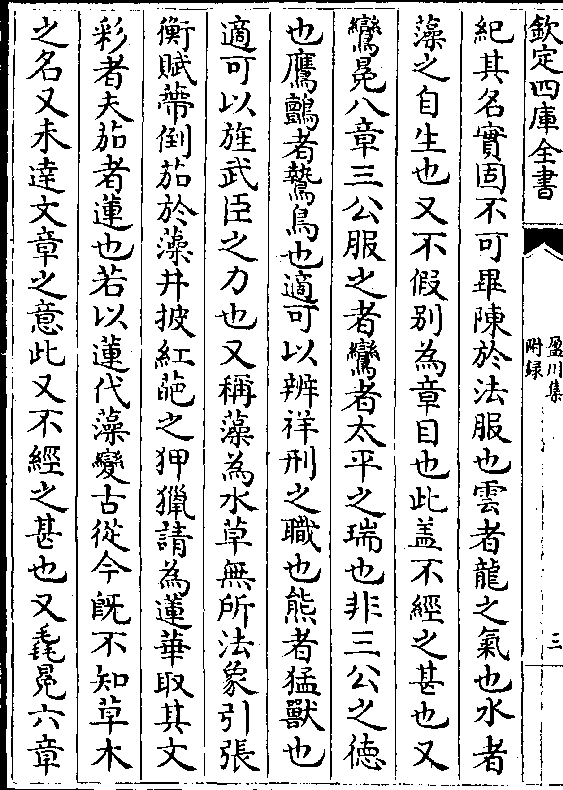 欽定四庫全書
盈川集
附録
三
紀其名實固不可畢陳於法服也雲者龍之氣也水者
藻之自生也又不假别為章目也此盖不經之甚也又
鸞冕八章三公服之者鸞者太平之瑞也非三公之徳
也鷹鸇者鷙鳥也適可以辨祥刑之職也熊者猛獸也
適可以旌武臣之力也又稱藻為水草無所法象引張
衡賦蔕倒茄於藻井披紅葩之狎獵請為蓮華取其文
彩者夫茄者蓮也若以蓮代藻變古從今既不知草木
之名又未達文章之意此又不經之甚也又毳冕六章